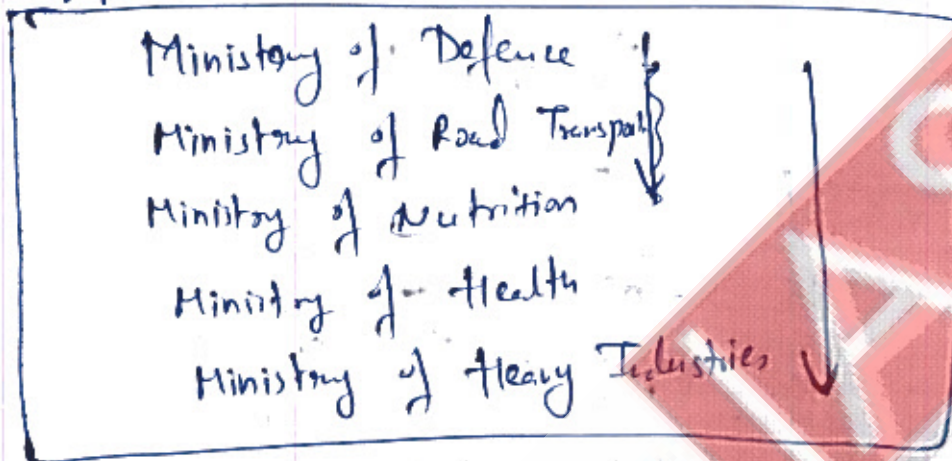 Ministry of Defence
Ministry of Road Transport
Ministry of Nutrition
Ministry of Health
Ministry of Heavy Industries